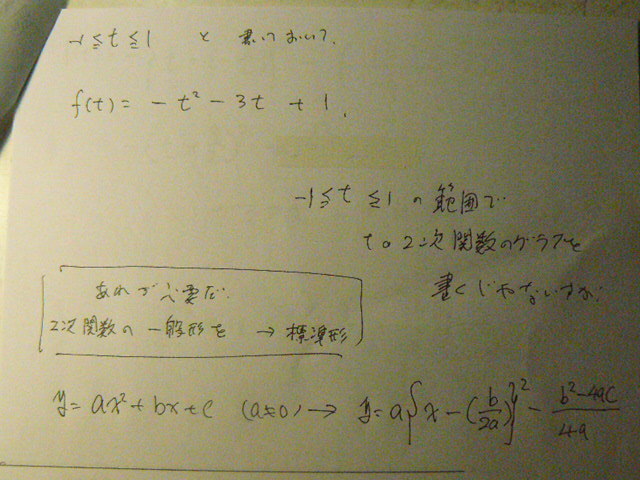 -1≦t≦1 と書いておいて、
f(t) = -t² - 3t + 1 、
-1≦t≦1 の範囲で
tの2次関数のグラフを
書くじゃないすか。
あれが必要だ。
2次関数の一般形を → 標準形
y = ax² + bx + c (a≠0) → y = a{x - (b/2a)}² - (b²-4ac)/4a